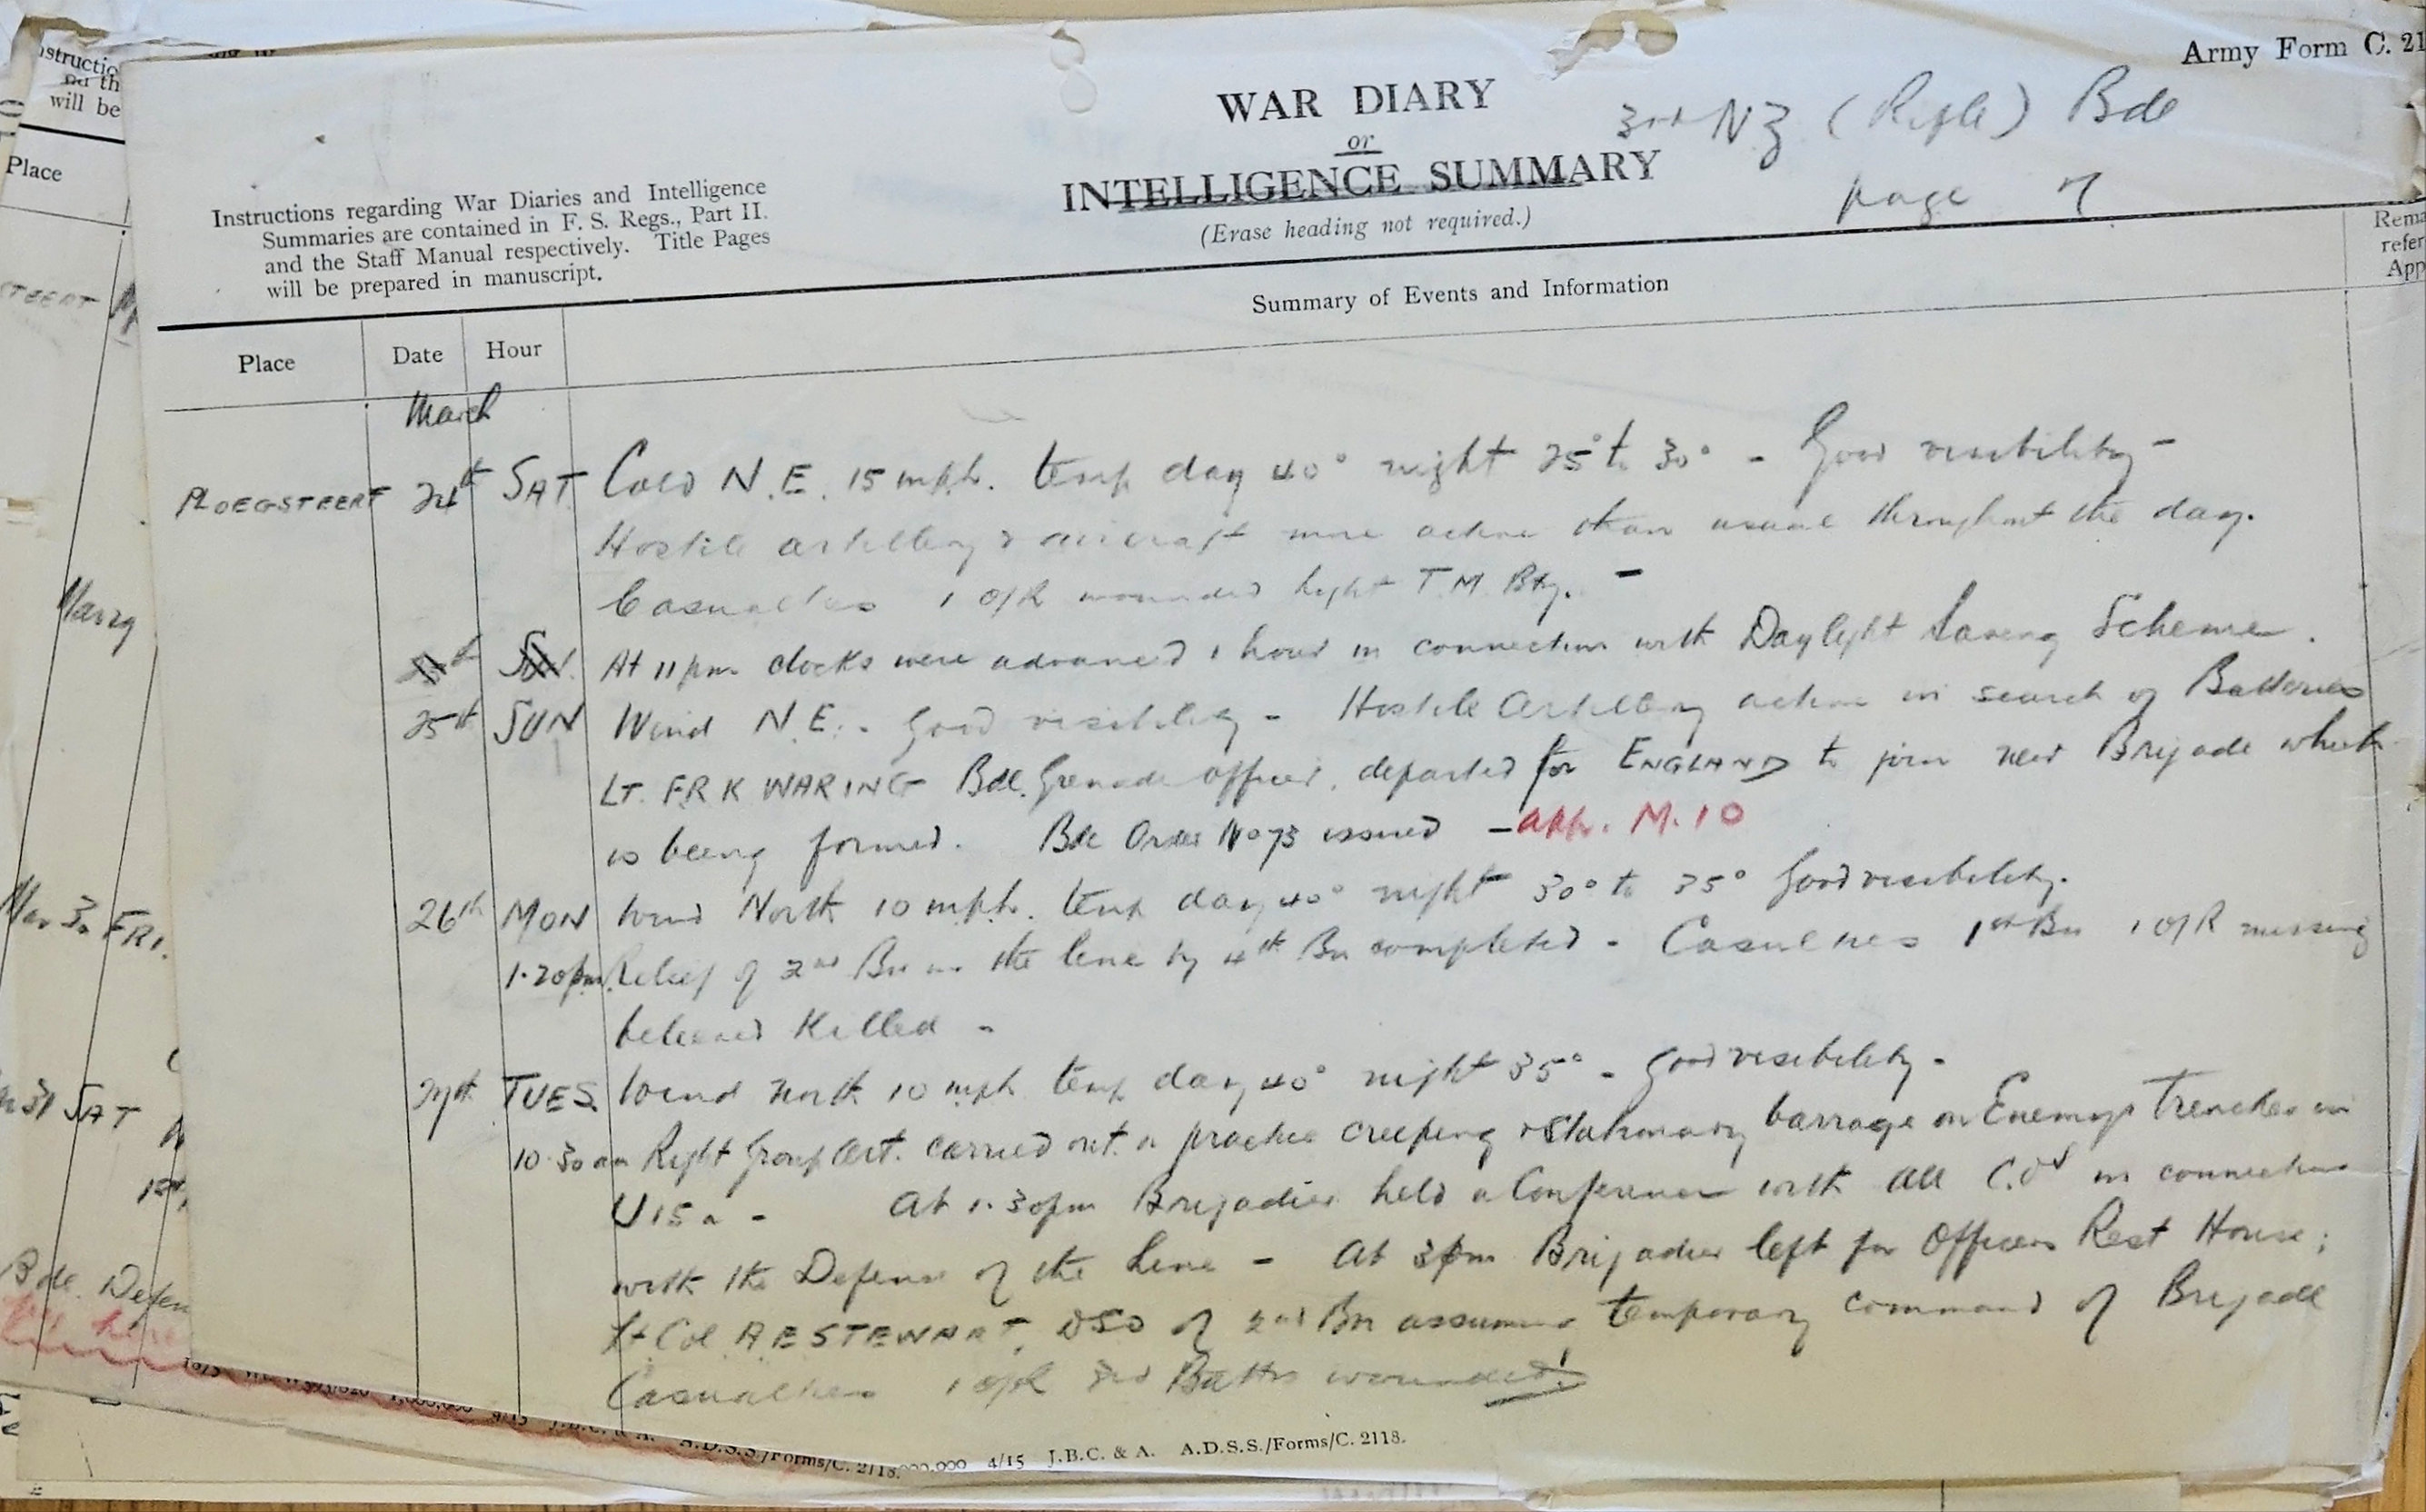 Army Form C. 21
WAR DIARY
or
INTELLIGENCE SUMMARY
(Erase heading not required.)
3rd NZ (Rifle) Bde
page 7
Instructions regarding War Diaries and Intelligence
Summaries are contained in F. S. Regs., Part II.
and the Staff Manual respectively. Title Pages
will be prepared in manuscript.
Place
Date
Hour
Summary of Events and Information
Rema
refer
App
March
PLOEGSTEERT 24th SAT Cold N.E. 15 mph. temp day 40° night 25° to 30° - Good visibility -
Hostile artillery & aircraft more active than usual throughout the day.
Casualties 1 O/R wounded light T.M. Bty. -
At 11 pm clocks were advanced 1 hour in connection with Daylight Saving Scheme.
25th SUN Wind N.E. - Good visibility - Hostile Artillery active in search of Batteries
LT. F.R K WARING Bde. Grenade officer, departed for ENGLAND to join new Brigade which
is being formed. Bde Order No 73 issued - app. M.10
26th MON Wind North 10 mph. temp day 40° night 30° to 35° Good visibility.
1.20pm Relief of 2nd Bn in the line by 4th Bn completed - Casualties 1st Bn 1 O/R missing
believed killed -
27th TUES Wind North 10 mph temp day 40° night 35° - Good visibility -
10.30 am Right Group Art. carried out a practice creeping & stationary barrage on Enemys Trenches in
U15a - At 1.30pm Brigadier held a Conference with all C.Os in connection
with the Defence of the Line - At 3pm Brigadier left for Officers Rest House;
Lt Col A E STEWART, DSO of 2nd Bn assuming temporary command of Brigade
Casualties 1 O/R 3rd Battn wounded
4/15 J.B.C. & A. A.D.S.S./Forms/C. 2118.
will be
Place
Mar 30 FRI.
31 SAT
Bde. Defen
here
A.D.S.S./Forms/C. 2118.